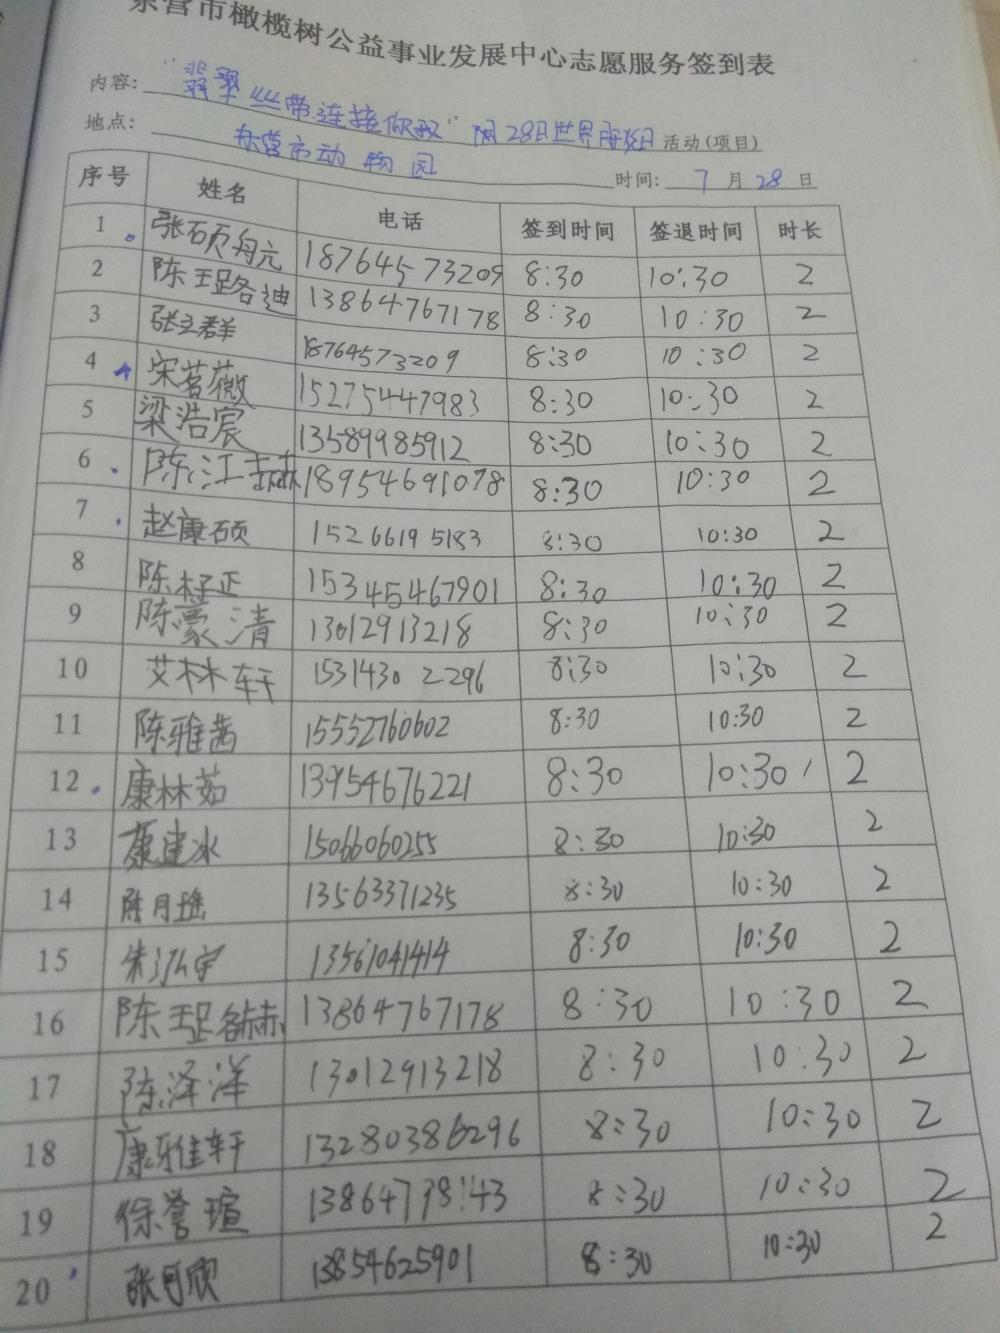 东营市橄榄树公益事业发展中心志愿服务签到表
内容: "翡翠丝带连接你我" 7月28日世界肝炎日 活动(项目)
地点: 东营市动物园 时间: 7 月 28 日
序号 姓名 电话 签到时间 签退时间 时长
1 张硕舟元 18764573209 8:30 10:30 2
2 陈璐迪 13864767178 8:30 10:30 2
3 张立群 18764573209 8:30 10:30 2
4 宋茗薇 15275447983 8:30 10:30 2
5 梁浩宸 13589985912 8:30 10:30 2
6 陈江赫 18954691078 8:30 10:30 2
7 赵康硕 15266195183 8:30 10:30 2
8 陈梓正 15345467901 8:30 10:30 2
9 陈蒙清 13012913218 8:30 10:30 2
10 艾林轩 15314302296 8:30 10:30 2
11 陈雅茜 15552760602 8:30 10:30 2
12 康林茹 13954676221 8:30 10:30 2
13 康建冰 15066060255 8:30 10:30 2
14 陈月瑶 13563371235 8:30 10:30 2
15 朱泓宇 13561041414 8:30 10:30 2
16 陈璐赫 13864767178 8:30 10:30 2
17 陈泽洋 13012913218 8:30 10:30 2
18 康雅轩 13280386296 8:30 10:30 2
19 徐誉瑄 8:30 10:30 2
20 张月欣 13854625901 8:30 10:30 2